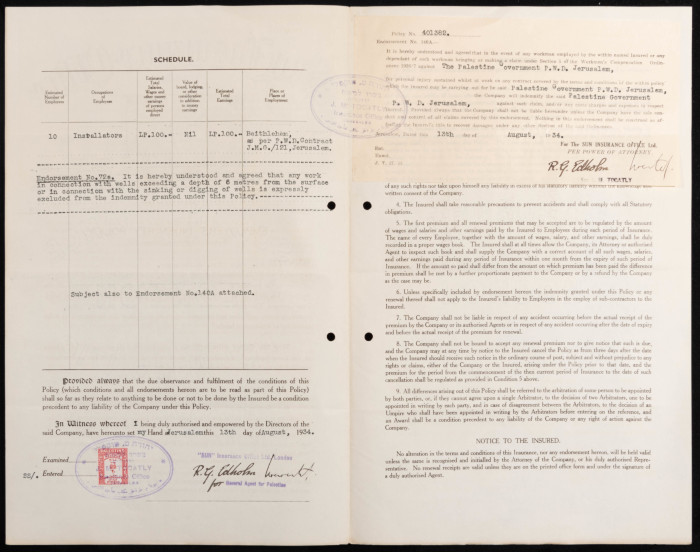 SCHEDULE.
Estimated Number of Employees
Occupations of Employees
Estimated Total Salaries, Wages and other money earnings of persons employed direct
Value of board, lodging, or other consideration in addition to money earnings
Estimated Total Earnings
Place or Places of Employment
10 Installators LP.100.- Nil LP.100.- Beithlehem
as per P.W.D. Contract
Jerusalem.
Endorsement No.72a. It is hereby understood and agreed that any work
in connection with wells exceeding a depth of 6 metres from the surface
or in connection with the sinking or digging of wells is expressly
excluded from the indemnity granted under this Policy.
Subject also to Endorsement No.140A attached.
Provided always that the due observance and fulfilment of the conditions of this
Policy (which conditions and all endorsements hereon are to be read as part of this Policy)
shall so far as they relate to anything to be done or not to be done by the Insured be a condition
precedent to any liability of the Company under this Policy.
In Witness whereof I being duly authorised and empowered by the Directors of the
said Company, have hereunto set my Hand Jerusalem this 13th day of August, 1934.
Examined
22/. Entered
R.G. Edholm
for General Agent for Palestine
Policy No. 401382.
Endorsement No. 140A.
It is hereby understood and agreed that in the event of any workman employed by the within named Insured or any
The Palestine Government P.W.D. Jerusalem,
Palestine Government P.W.D. Jerusalem,
the Company will indemnify the said Palestine Government
P. W. D. Jerusalem,
13th day of August, 34.
For THE SUN INSURANCE OFFICE Ltd.
PER POWER OF ATTORNEY
R.G. Edholm
written consent of the Company.
4. The Insured shall take reasonable precautions to prevent accidents and shall comply with all Statutory
obligations.
5. The first premium and all renewal premiums that may be accepted are to be regulated by the amount
of wages and salaries and other earnings paid by the Insured to Employees during each period of Insurance.
The name of every Employee, together with the amount of wages, salary, and other earnings, shall be duly
recorded in a proper wages book. The Insured shall at all times allow the Company, its Attorney or authorised
Agent to inspect such book and shall supply the Company with a correct account of all such wages, salaries,
and other earnings paid during any period of Insurance within one month from the expiry of such period of
Insurance. If the amount so paid shall differ from the amount on which premium has been paid the difference
in premium shall be met by a further proportionate payment to the Company or by a refund by the Company
as the case may be.
6. Unless specifically included by endorsement hereon the indemnity granted under this Policy or any
renewal thereof shall not apply to the Insured's liability to Employees in the employ of sub-contractors to the
Insured.
7. The Company shall not be liable in respect of any accident occurring before the actual receipt of the
premium by the Company or its authorised Agents or in respect of any accident occurring after the date of expiry
and before the actual receipt of the premium for renewal.
8. The Company shall not be bound to accept any renewal premium nor to give notice that such is due,
and the Company may at any time by notice to the Insured cancel the Policy as from three days after the date
when the Insured should receive such notice in the ordinary course of post, subject and without prejudice to any
rights or claims, either of the Company or the Insured, arising under the Policy prior to that date, and the
premium for the period from the commencement of then current period of Insurance to the date of such
cancellation shall be regulated as provided in Condition 5 above.
9. All differences arising out of this Policy shall be referred to the arbitration of some person to be appointed
by both parties, or, if they cannot agree upon a single Arbitrator, to the decision of two Arbitrators, one to be
appointed in writing by each party, and in case of disagreement between the Arbitrators, to the decision of an
Umpire who shall have been appointed in writing by the Arbitrators before entering on the reference, and
an Award shall be a condition precedent to any liability of the Company or any right of action against the
Company.
NOTICE TO THE INSURED.
No alteration in the terms and conditions of this Insurance, nor any endorsement hereon, will be held valid
unless the same is recognised and initialled by the Attorney of the Company, or his duly authorised Repre-
sentative. No renewal receipts are valid unless they are on the printed office form and under the signature of
a duly authorised Agent.